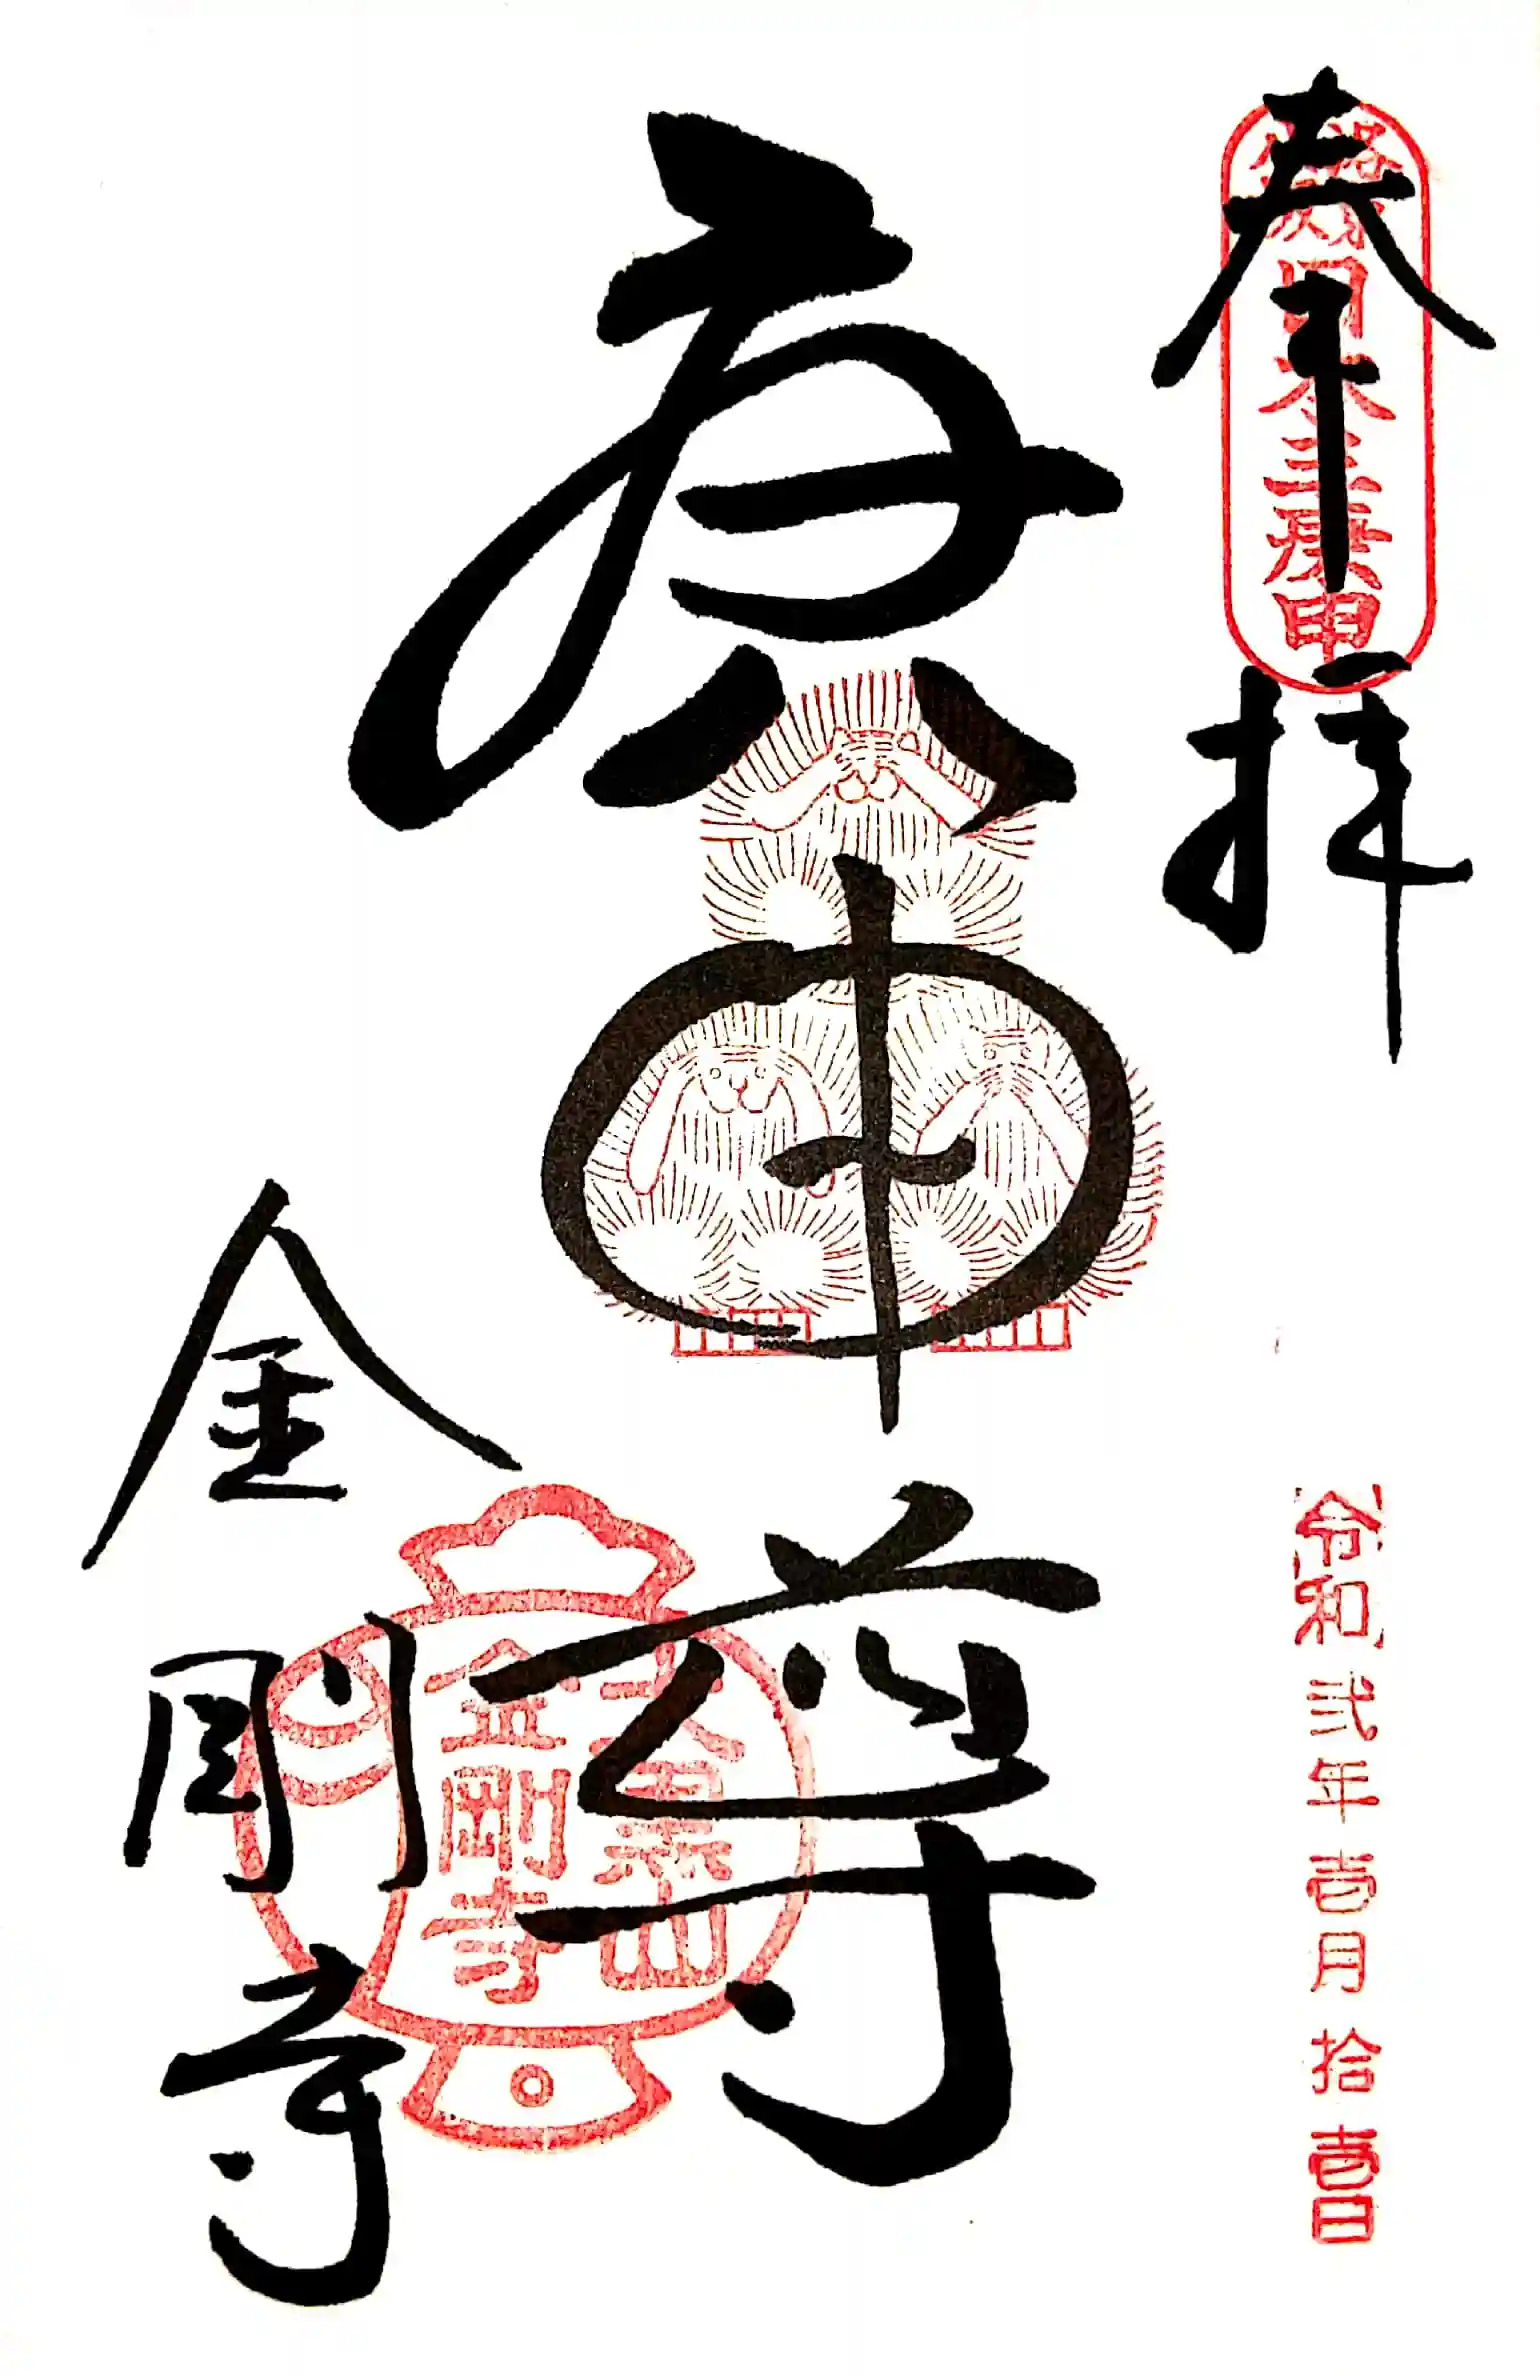 奉拝
令和弐年壱月拾壱日
庚申尊
金剛寺
金剛寺